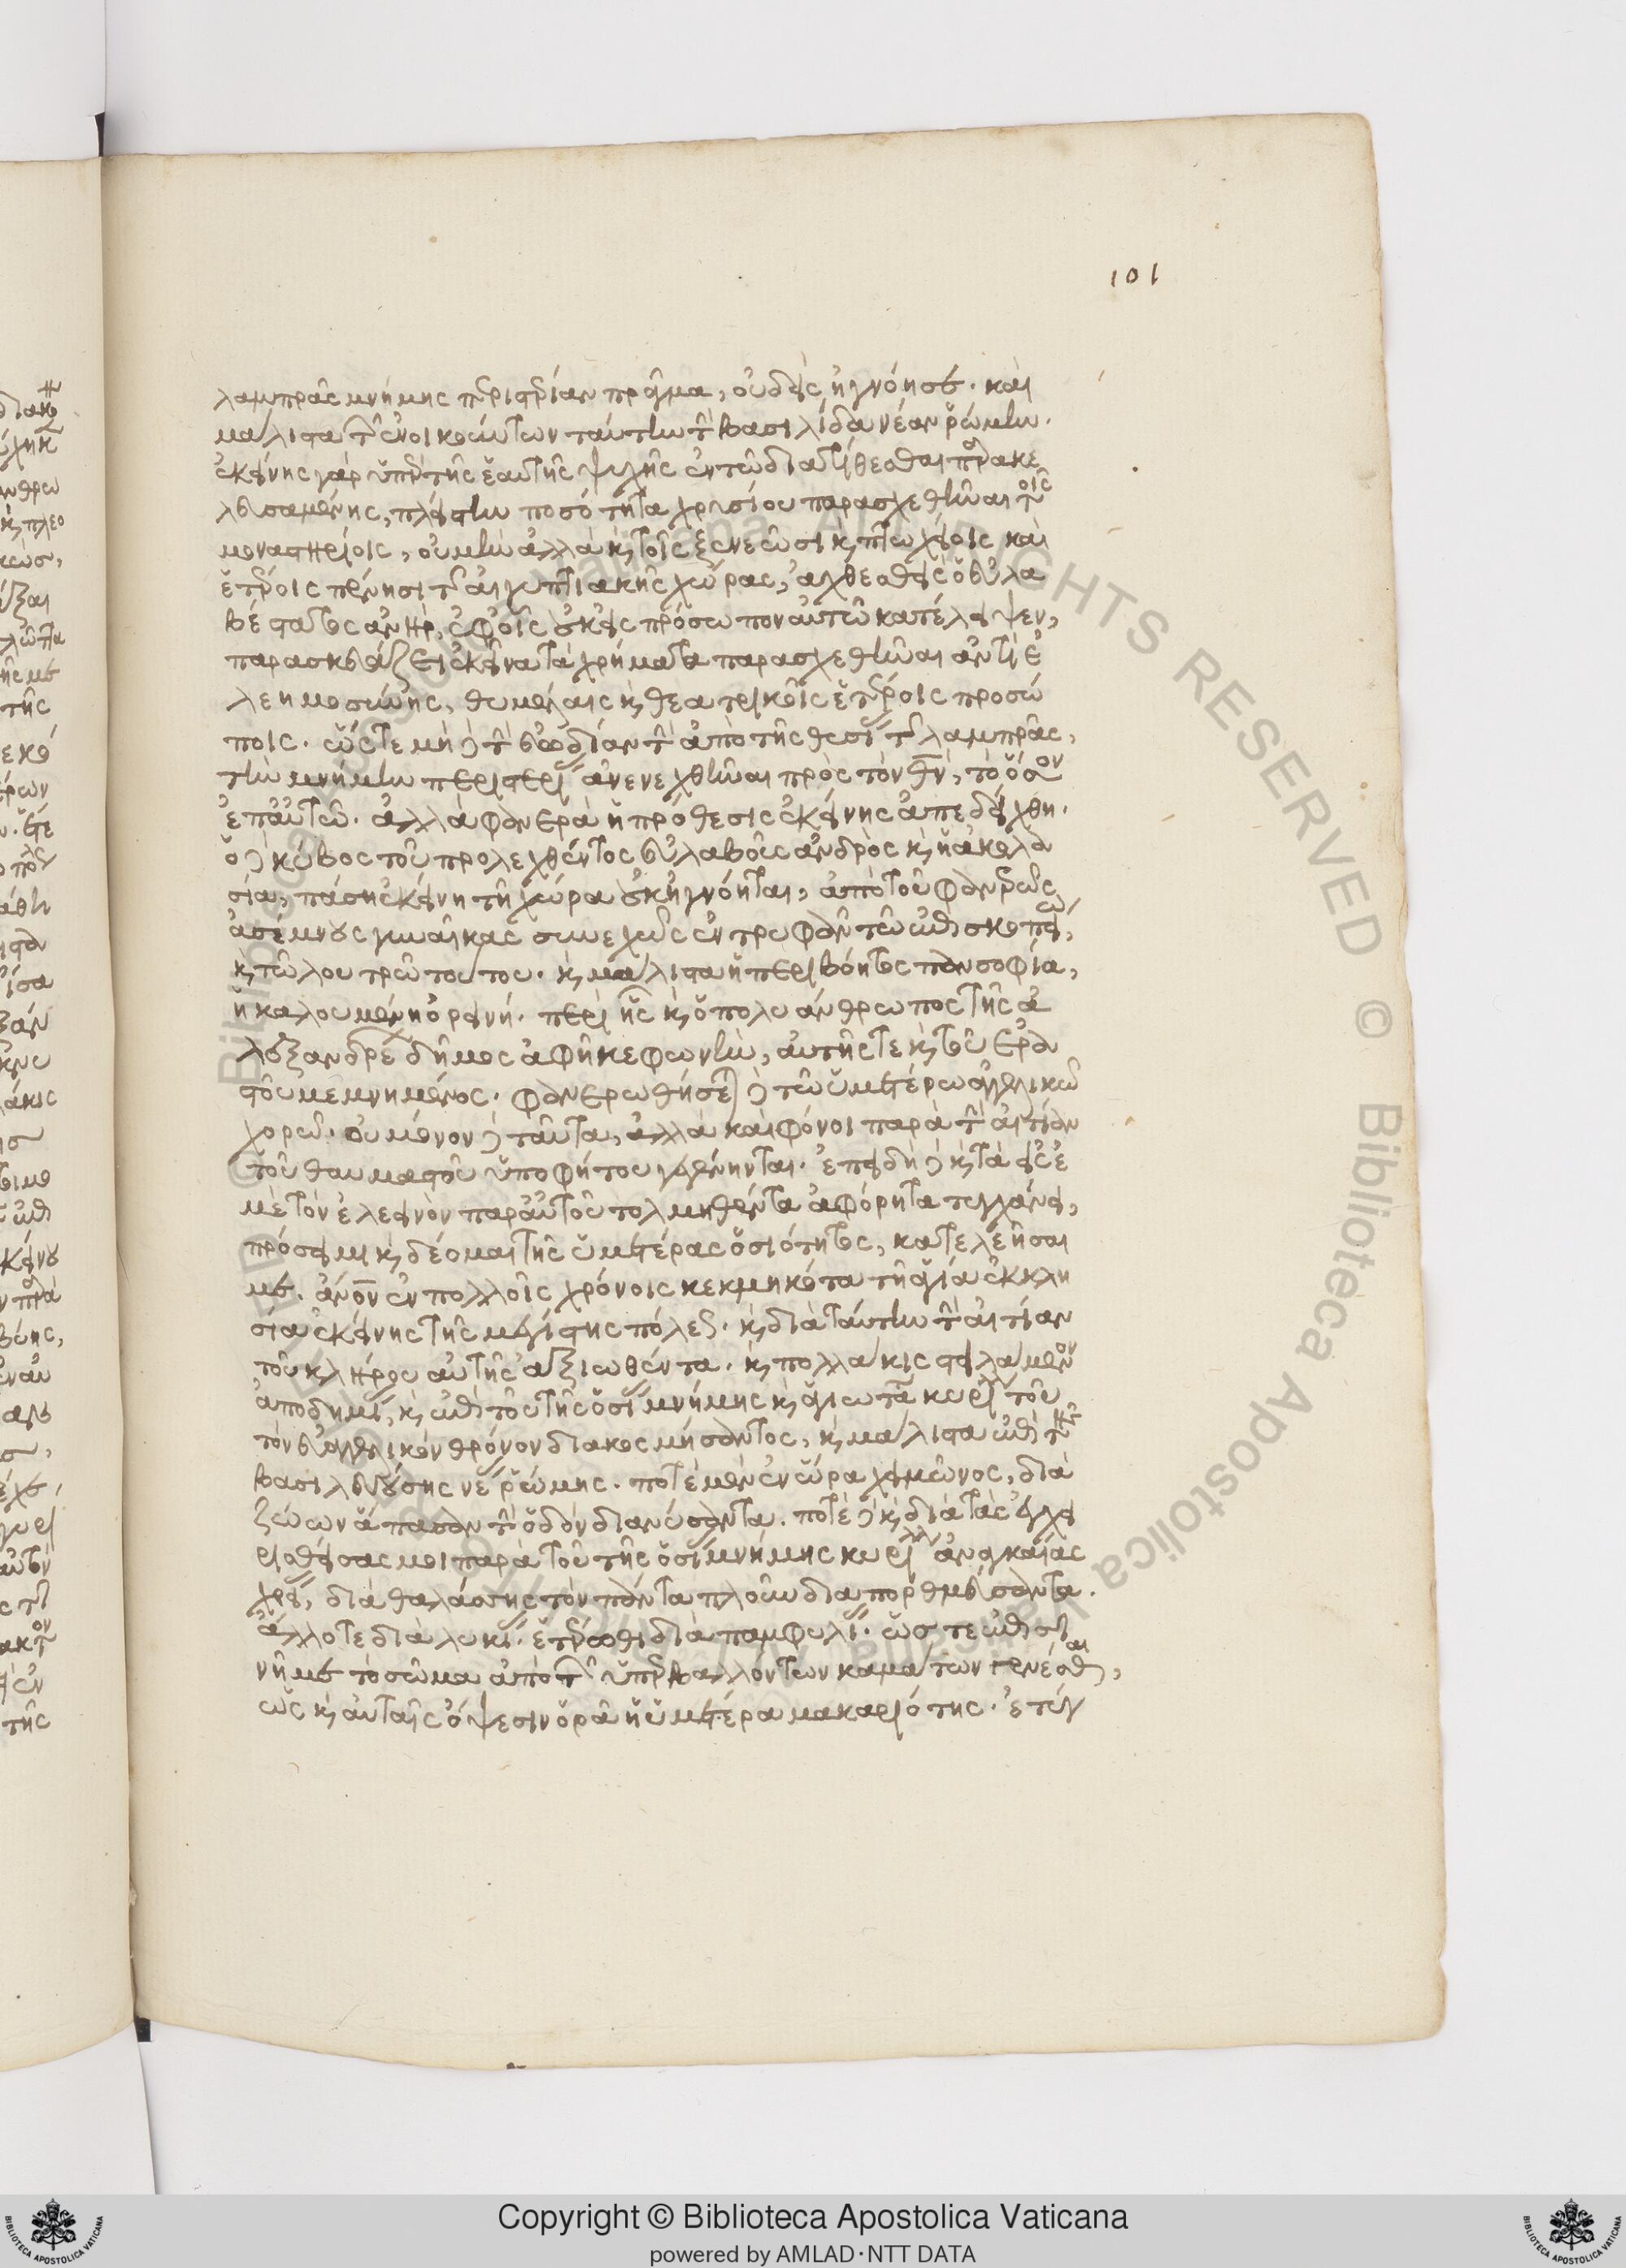 101
λαμπρᾶς μνήμης περιστερίαν πρᾶγμα, οὐδεὶς ἠγνόησε. καὶ
μάλιστα τῶν ἐνοικούντων ταύτην τὴν βασιλίδα νέαν ῥώμην.
ἐκείνης γὰρ ὑπὲρ τῆς ἑαυτῆς ψυχῆς ἐν τῷ διατίθεσθαι παρακε
λευσαμένης, πλείστην ποσότητα χρυσίου παρασχεθῆναι τοῖς
μοναστηρίοις, οὐ μὴν ἀλλὰ καὶ τοῖς ξενεῶσι καὶ πτωχείοις καὶ
ἑτέροις πένησι τῆς αἰγυπτιακῆς χώρας, ἀχθεσθεὶς ὁ εὐλα
βέστατος ἀνὴρ, ἐφ' οἷς οὐκ εἰς πρόσωπον αὐτῷ κατέλειψεν,
παρασκευάζει ἐκεῖνα τὰ χρήματα παρασχεθῆναι ἀντὶ ἐ
λεημοσύνης, θυμέλαις καὶ θεατρικοῖς ἑτέροις προσώ
ποις. ὥστε μὴ δὲ τὴν εὐωδίαν τὴν ἀπὸ τῆς θυσίας τῆς λαμπρᾶς,
τὴν μνήμην περιστερίας ἀνενεχθῆναι πρὸς τὸν θν, τὸ ὅσον
ἐπ' αὐτῷ. ἀλλὰ φανερὰ ἡ πρόθεσις ἐκείνης ἀπεδείχθη.
ὁ δὲ κύβος τοῦ προλεχθέντος εὐλαβοῦς ἀνδρὸς καὶ ἡ ἀκολα
σία, πάσῃ ἐκείνῃ τῇ χώρᾳ οὐκ ἠγνόηται, ἀπὸ τοῦ φανερῶς
ἀσέμνους γυναῖκας συνεχῶς ἐντρυφᾶν τῷ ἐπισκοπείῳ,
καὶ τῷ λουτρῷ τούτου. καὶ μάλιστα ἡ περιβόητος πανσοφία,
ἡ καλουμένη ὀρεινή. περὶ ἧς καὶ ὁ πολυάνθρωπος τῆς ἀ
λεξανδρέων δῆμος ἀφῆκε φωνὴν, αὐτῆς τε καὶ τοῦ ἐρα
στοῦ μεμνημένος. φανερωθήσεται δὲ τῷ ὑμετέρῳ ἀγγελικῷ
χορῷ. οὐ μόνον δὲ ταῦτα, ἀλλὰ καὶ φόνοι παρὰ τὴν αἰτίαν
τοῦ θαυμαστοῦ ὑποφήτου γεγένηνται. ἐπειδὴ δὲ καὶ τὰ εἰς ἐ
μὲ τὸν ἐλεεινὸν παρ' αὐτοῦ τολμηθέντα ἀφόρητα τυγχάνει,
πρόσειμι καὶ δέομαι τῆς ὑμετέρας ὁσιότητος, κατελεῆσαι
με. ἀνον ἐν πολλοῖς χρόνοις κεκμηκότα τῇ ἁγίᾳ ἐκκλη
σίᾳ ἐκείνης τῆς μεγίστης πόλεως. καὶ διὰ ταύτην τὴν αἰτίαν
τοῦ κλήρου αὐτῆς ἀξιωθέντα. καὶ πολλάκις στειλάμενον
ἀποδημίας, καὶ ἐπὶ τοῦ τῆς ὁσίας μνήμης καὶ ἁγιωτάτου κυρίλλου τοῦ
τὸν εὐαγγελικὸν θρόνον διακοσμήσαντος, καὶ μάλιστα ἐπὶ τῆς
βασιλευούσης νέας ῥώμης. ποτὲ μὲν ἐν ὥρᾳ χειμῶνος, διὰ
ζώων ἅπασαν τὴν ὁδὸν διανύσαντα. ποτὲ δὲ καὶ διὰ τὰς ἐγχει
ρισθείσας μοι παρὰ τοῦ τῆς ὁσίας μνήμης κυρίλλου ἀναγκαίας
χρείας, διὰ θαλάσσης τὸν πάντα πλοῦν διαπορθμεύσαντα.
ἄλλοτε διὰ λυκίας. ἑτέρωθι διὰ παμφυλίας. ὥστε ἐπισι
νῆ με τὸ σῶμα ἀπὸ τῶν ὑπερβαλλόντων καμάτων γενέσθαι,
ὡς καὶ αὐταῖς ὄψεσιν ὁρᾷ ἡ ὑμετέρα μακαριότης. ἐτύγ
Copyright © Biblioteca Apostolica Vaticana
powered by AMLAD·NTT DATA